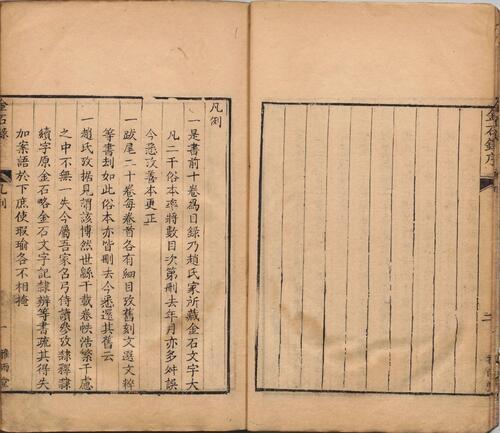 金石錄序
二
凡例
一是書前十卷為目錄乃趙氏家所藏金石文字大
凡二千俗本率將數目次第刪去年月亦多舛誤
今悉從善本更正
一跋尾二十卷每卷首各有細目攷舊刻文選文粹
等書例如此俗本亦皆刪去今悉還其舊云
一趙氏攷據見謂該博然世緜千載卷帙浩繁千慮
之中不無一失今屬吾家召弓侍讀參攷隸釋隸
續字原金石略金石文字記隸辨等書疏其得失
加案語於下庶使瑕瑜各不相掩
金石錄
凡例
一
雅雨堂